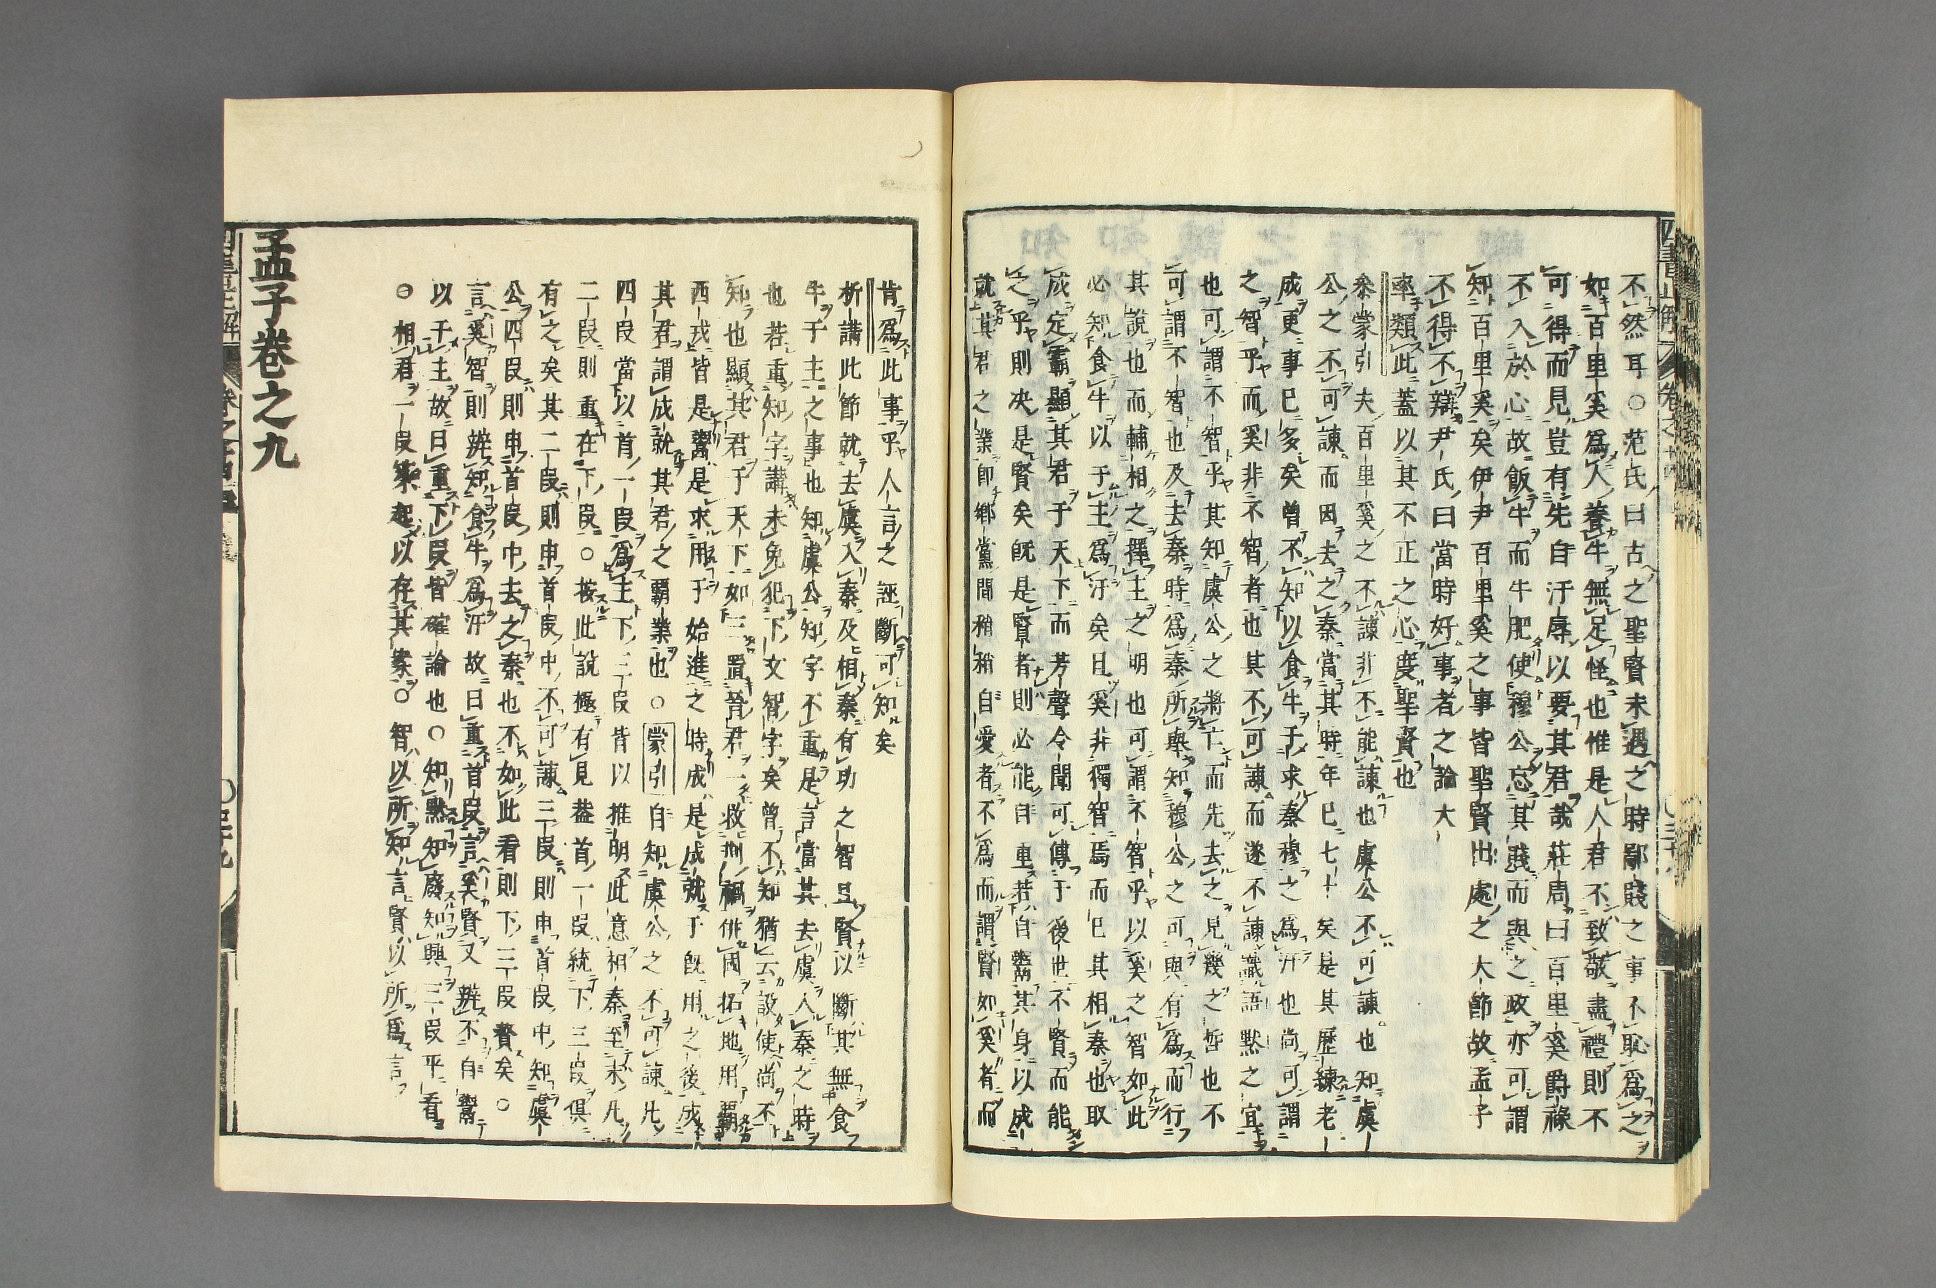 不然耳○范氏曰古之聖賢未遇之時鄙賤之事不恥爲之
如百里奚爲人養牛無足怪也惟是人君不致敬盡禮則不
可得而見豈有先自汙辱以要其君哉莊周曰百里奚爵祿
不入於心故飯牛而牛肥使穆公忘其賤而與之政亦可謂
知百里奚矣伊尹百里奚之事皆聖賢出處之大節故孟子
不得不辯尹氏曰當時好事者之論大
率類此蓋以其不正之心度聖賢也
參蒙引夫百里奚之不諫非不能諫也虞公不可諫也知虞
公之不可諫而因去之秦當其時年已七十矣是其歷練老
成更事已多矣曾不知以食牛干求秦穆之爲汙也尚可謂
之智乎而奚非不智者也其不可諫而遂不諫識語默之宜
也可謂不智乎其知虞公之將亡而先去之見幾之哲也不
可謂不智也及去秦時爲秦所擧知穆公之可與有爲而行
其說也而輔相之擇主之明也可謂不智乎以奚之智如此
必知食牛以干主爲汙矣且奚非獨智焉而已其相秦也取
成定霸顯其君于天下而芳聲令聞可傳于後世不賢而能
之乎則决是賢矣旣是賢者則必能自重若自鬻其身以成
就其君之業卽鄉黨間稍稍自愛者不爲而謂賢如奚者而
肯爲此事乎人言之誣斷可知矣
析講此節就去虞入秦及相秦有功之智且賢以斷其無食
牛于主之事也知虞公知字不重是言當其去虞入秦之時
也若重知字講未免犯下文智字矣曾不知猶云設使尚不
知也顯其君于天下如三置晉君一救荆禍俳囲拓地用霸
西戎皆是鬻是求用于始進之時成是成就于旣用之後成
其君謂成就其君之覇業也○蒙引自知虞公之不可諫凡
四段當以首一段爲主下三段皆以推明此意相秦至末凡
二段則重在下段○按此說極有見葢首一段統下三段俱
有之矣其二段則申首段中不可諫三段則申首段中知虞
公四段則申首段中去之秦也不如此看則下三段贅矣○
言奚智則辨知食牛爲汙故曰重首段言奚賢又辨不自鬻
以干主故曰重下段皆確論也○知默知廢知興三段平看
○相君一段築起以存其篆○智以所知言賢以所爲言
孟子卷之九
四書正解
卷之十四